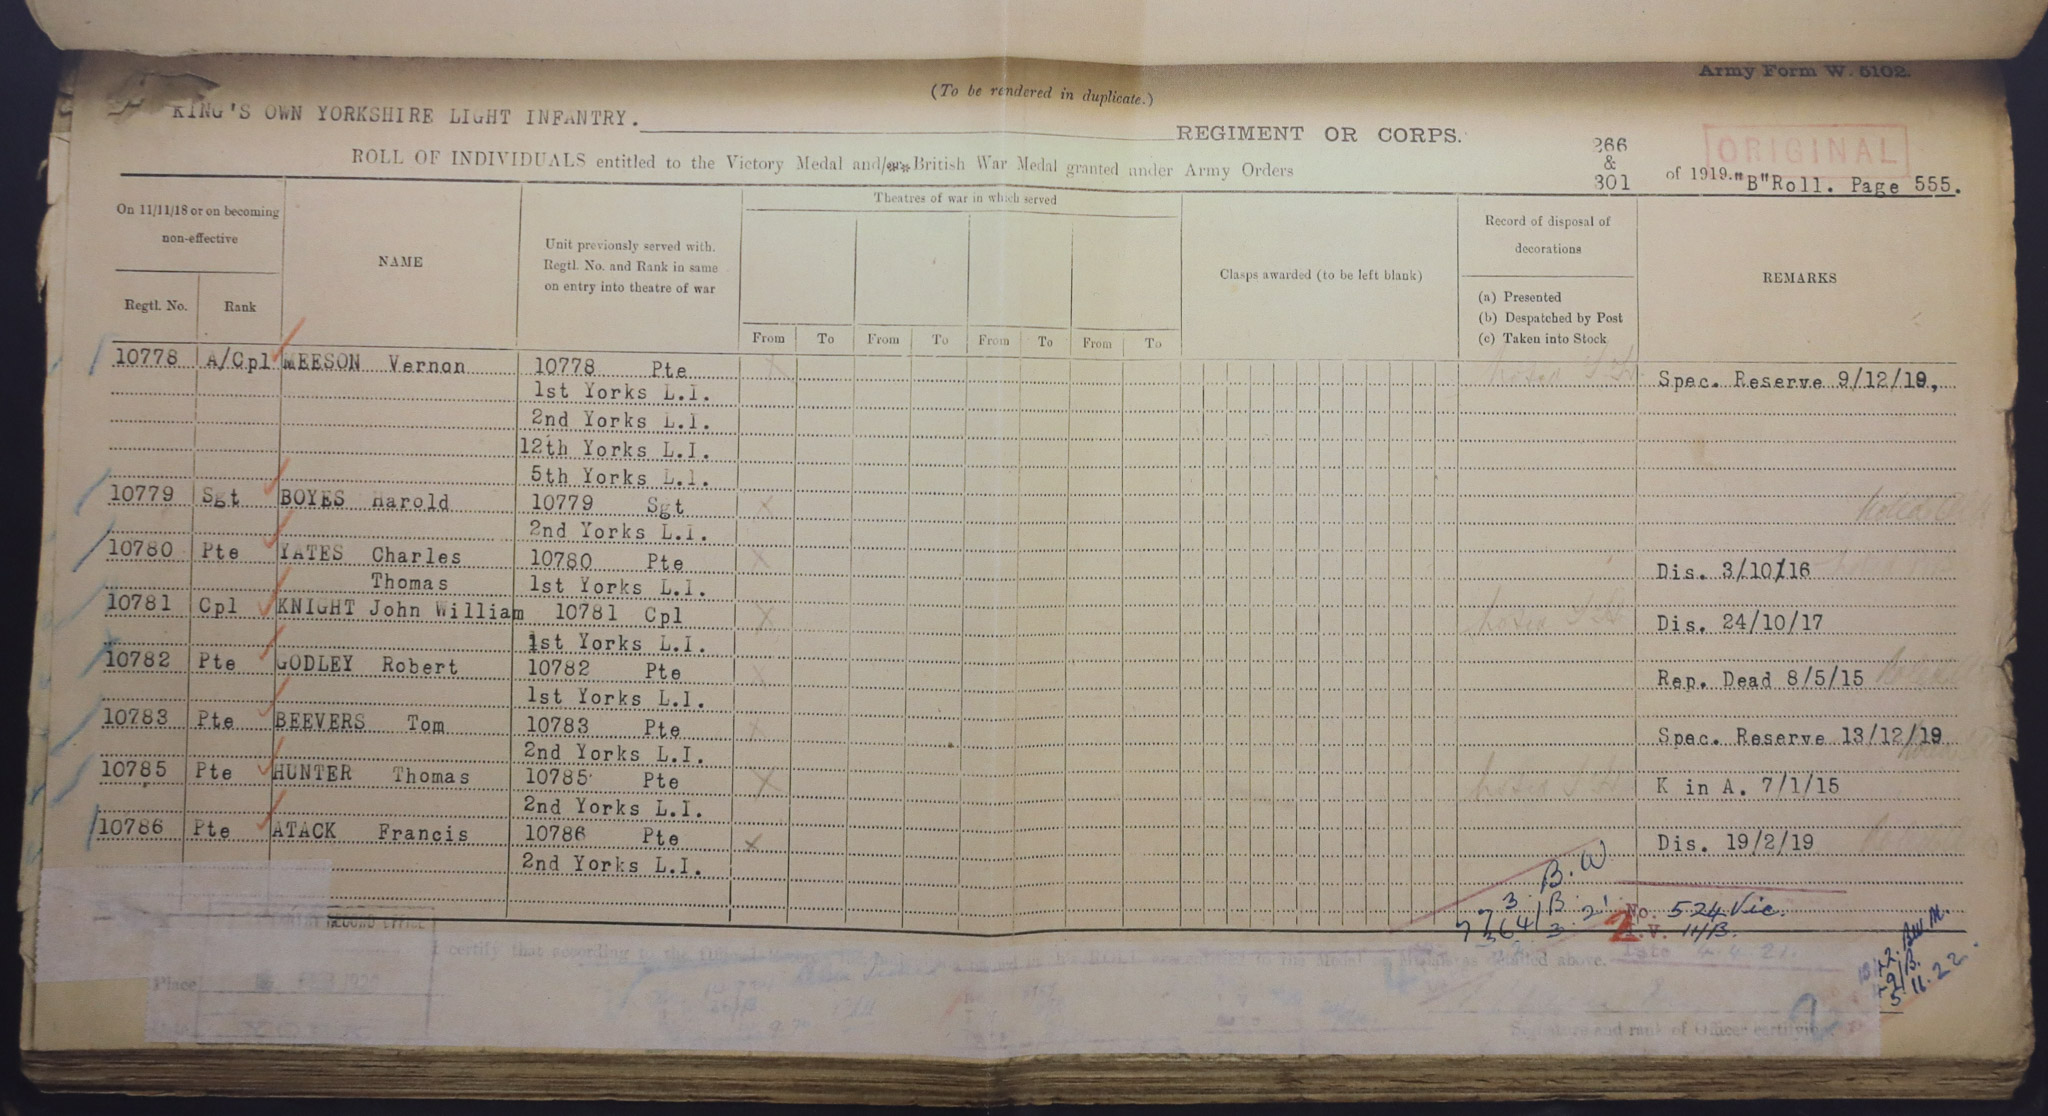 Army Form W. 5102.
(To be rendered in duplicate.)
KING'S OWN YORKSHIRE LIGHT INFANTRY. REGIMENT OR CORPS.
ORIGINAL
ROLL OF INDIVIDUALS entitled to the Victory Medal and/ British War Medal granted under Army Orders 266 & 301 of 1919. "B" Roll. Page 555.
On 11/11/18 or on becoming non-effective
Regtl. No.
Rank
NAME
Unit previously served with. Regtl. No. and Rank in same on entry into theatre of war
Theatres of war in which served
From To From To From To From To
Clasps awarded (to be left blank)
Record of disposal of decorations
(a) Presented
(b) Despatched by Post
(c) Taken into Stock
REMARKS
10778 A/Cpl MEESON Vernon 10778 Pte Spec. Reserve 9/12/19,
1st Yorks L.I.
2nd Yorks L.I.
12th Yorks L.I.
5th Yorks L.I.
10779 Sgt BOYES Harold 10779 Sgt
2nd Yorks L.I.
10780 Pte YATES Charles 10780 Pte Dis. 3/10/16
Thomas 1st Yorks L.I.
10781 Cpl KNIGHT John William 10781 Cpl Dis. 24/10/17
1st Yorks L.I.
10782 Pte GODLEY Robert 10782 Pte Rep. Dead 8/5/15
1st Yorks L.I.
10783 Pte BEEVERS Tom 10783 Pte Spec. Reserve 13/12/19
2nd Yorks L.I.
10785 Pte HUNTER Thomas 10785 Pte K in A. 7/1/15
2nd Yorks L.I.
10786 Pte ATACK Francis 10786 Pte Dis. 19/2/19
2nd Yorks L.I.
B.W.
No. 524 Vic.
I.V. 11/B.
Date 4.4.21.
RECORD OFFICE
I certify that according to the Official
above.
Place
Signature and rank of Officer certifying